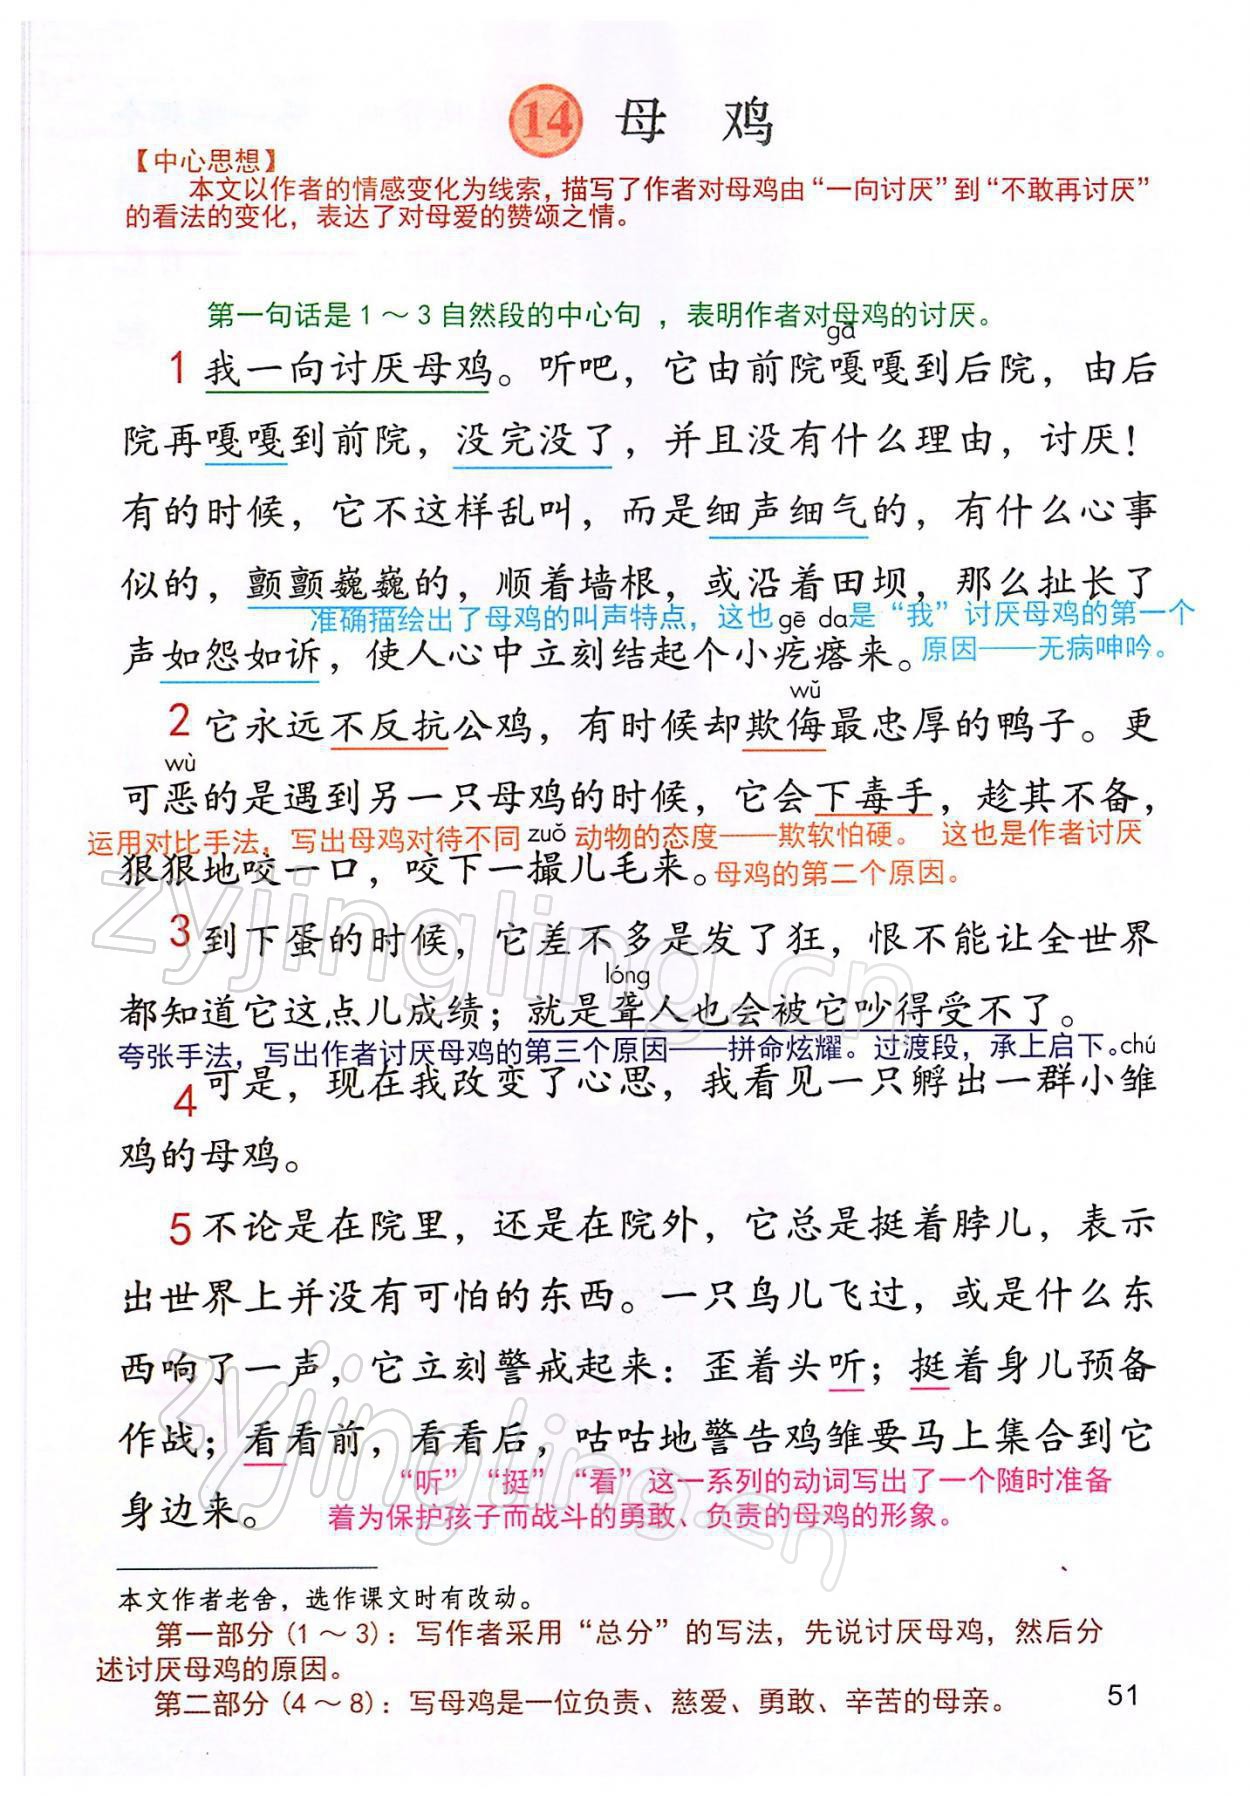 14 母 鸡
【中心思想】
本文以作者的情感变化为线索，描写了作者对母鸡由“一向讨厌”到“不敢再讨厌”
的看法的变化，表达了对母爱的赞颂之情。
第一句话是1～3自然段的中心句，表明作者对母鸡的讨厌。
gā
1 我一向讨厌母鸡。听吧，它由前院嘎嘎到后院，由后
院再嘎嘎到前院，没完没了，并且没有什么理由，讨厌！
有的时候，它不这样乱叫，而是细声细气的，有什么心事
似的，颤颤巍巍的，顺着墙根，或沿着田坝，那么扯长了
准确描绘出了母鸡的叫声特点，这也 gē da 是“我”讨厌母鸡的第一个
声如怨如诉，使人心中立刻结起个小疙瘩来。原因——无病呻吟。
wǔ
2 它永远不反抗公鸡，有时候却欺侮最忠厚的鸭子。更
wù
可恶的是遇到另一只母鸡的时候，它会下毒手，趁其不备，
运用对比手法，写出母鸡对待不同 zuǒ 动物的态度——欺软怕硬。 这也是作者讨厌
狠狠地咬一口，咬下一撮儿毛来。母鸡的第二个原因。
3 到下蛋的时候，它差不多是发了狂，恨不能让全世界
lóng
都知道它这点儿成绩；就是聋人也会被它吵得受不了。
夸张手法，写出作者讨厌母鸡的第三个原因——拼命炫耀。过渡段，承上启下。chú
4 可是，现在我改变了心思，我看见一只孵出一群小雏
鸡的母鸡。
5 不论是在院里，还是在院外，它总是挺着脖儿，表示
出世界上并没有可怕的东西。一只鸟儿飞过，或是什么东
西响了一声，它立刻警戒起来：歪着头听；挺着身儿预备
作战；看看前，看看后，咕咕地警告鸡雏要马上集合到它
“听”“挺”“看”这一系列的动词写出了一个随时准备
身边来。 着为保护孩子而战斗的勇敢、负责的母鸡的形象。
本文作者老舍，选作课文时有改动。
第一部分（1～3）：写作者采用“总分”的写法，先说讨厌母鸡，然后分
述讨厌母鸡的原因。
第二部分（4～8）：写母鸡是一位负责、慈爱、勇敢、辛苦的母亲。
51
zyjingling.cn
zyjingling.cn